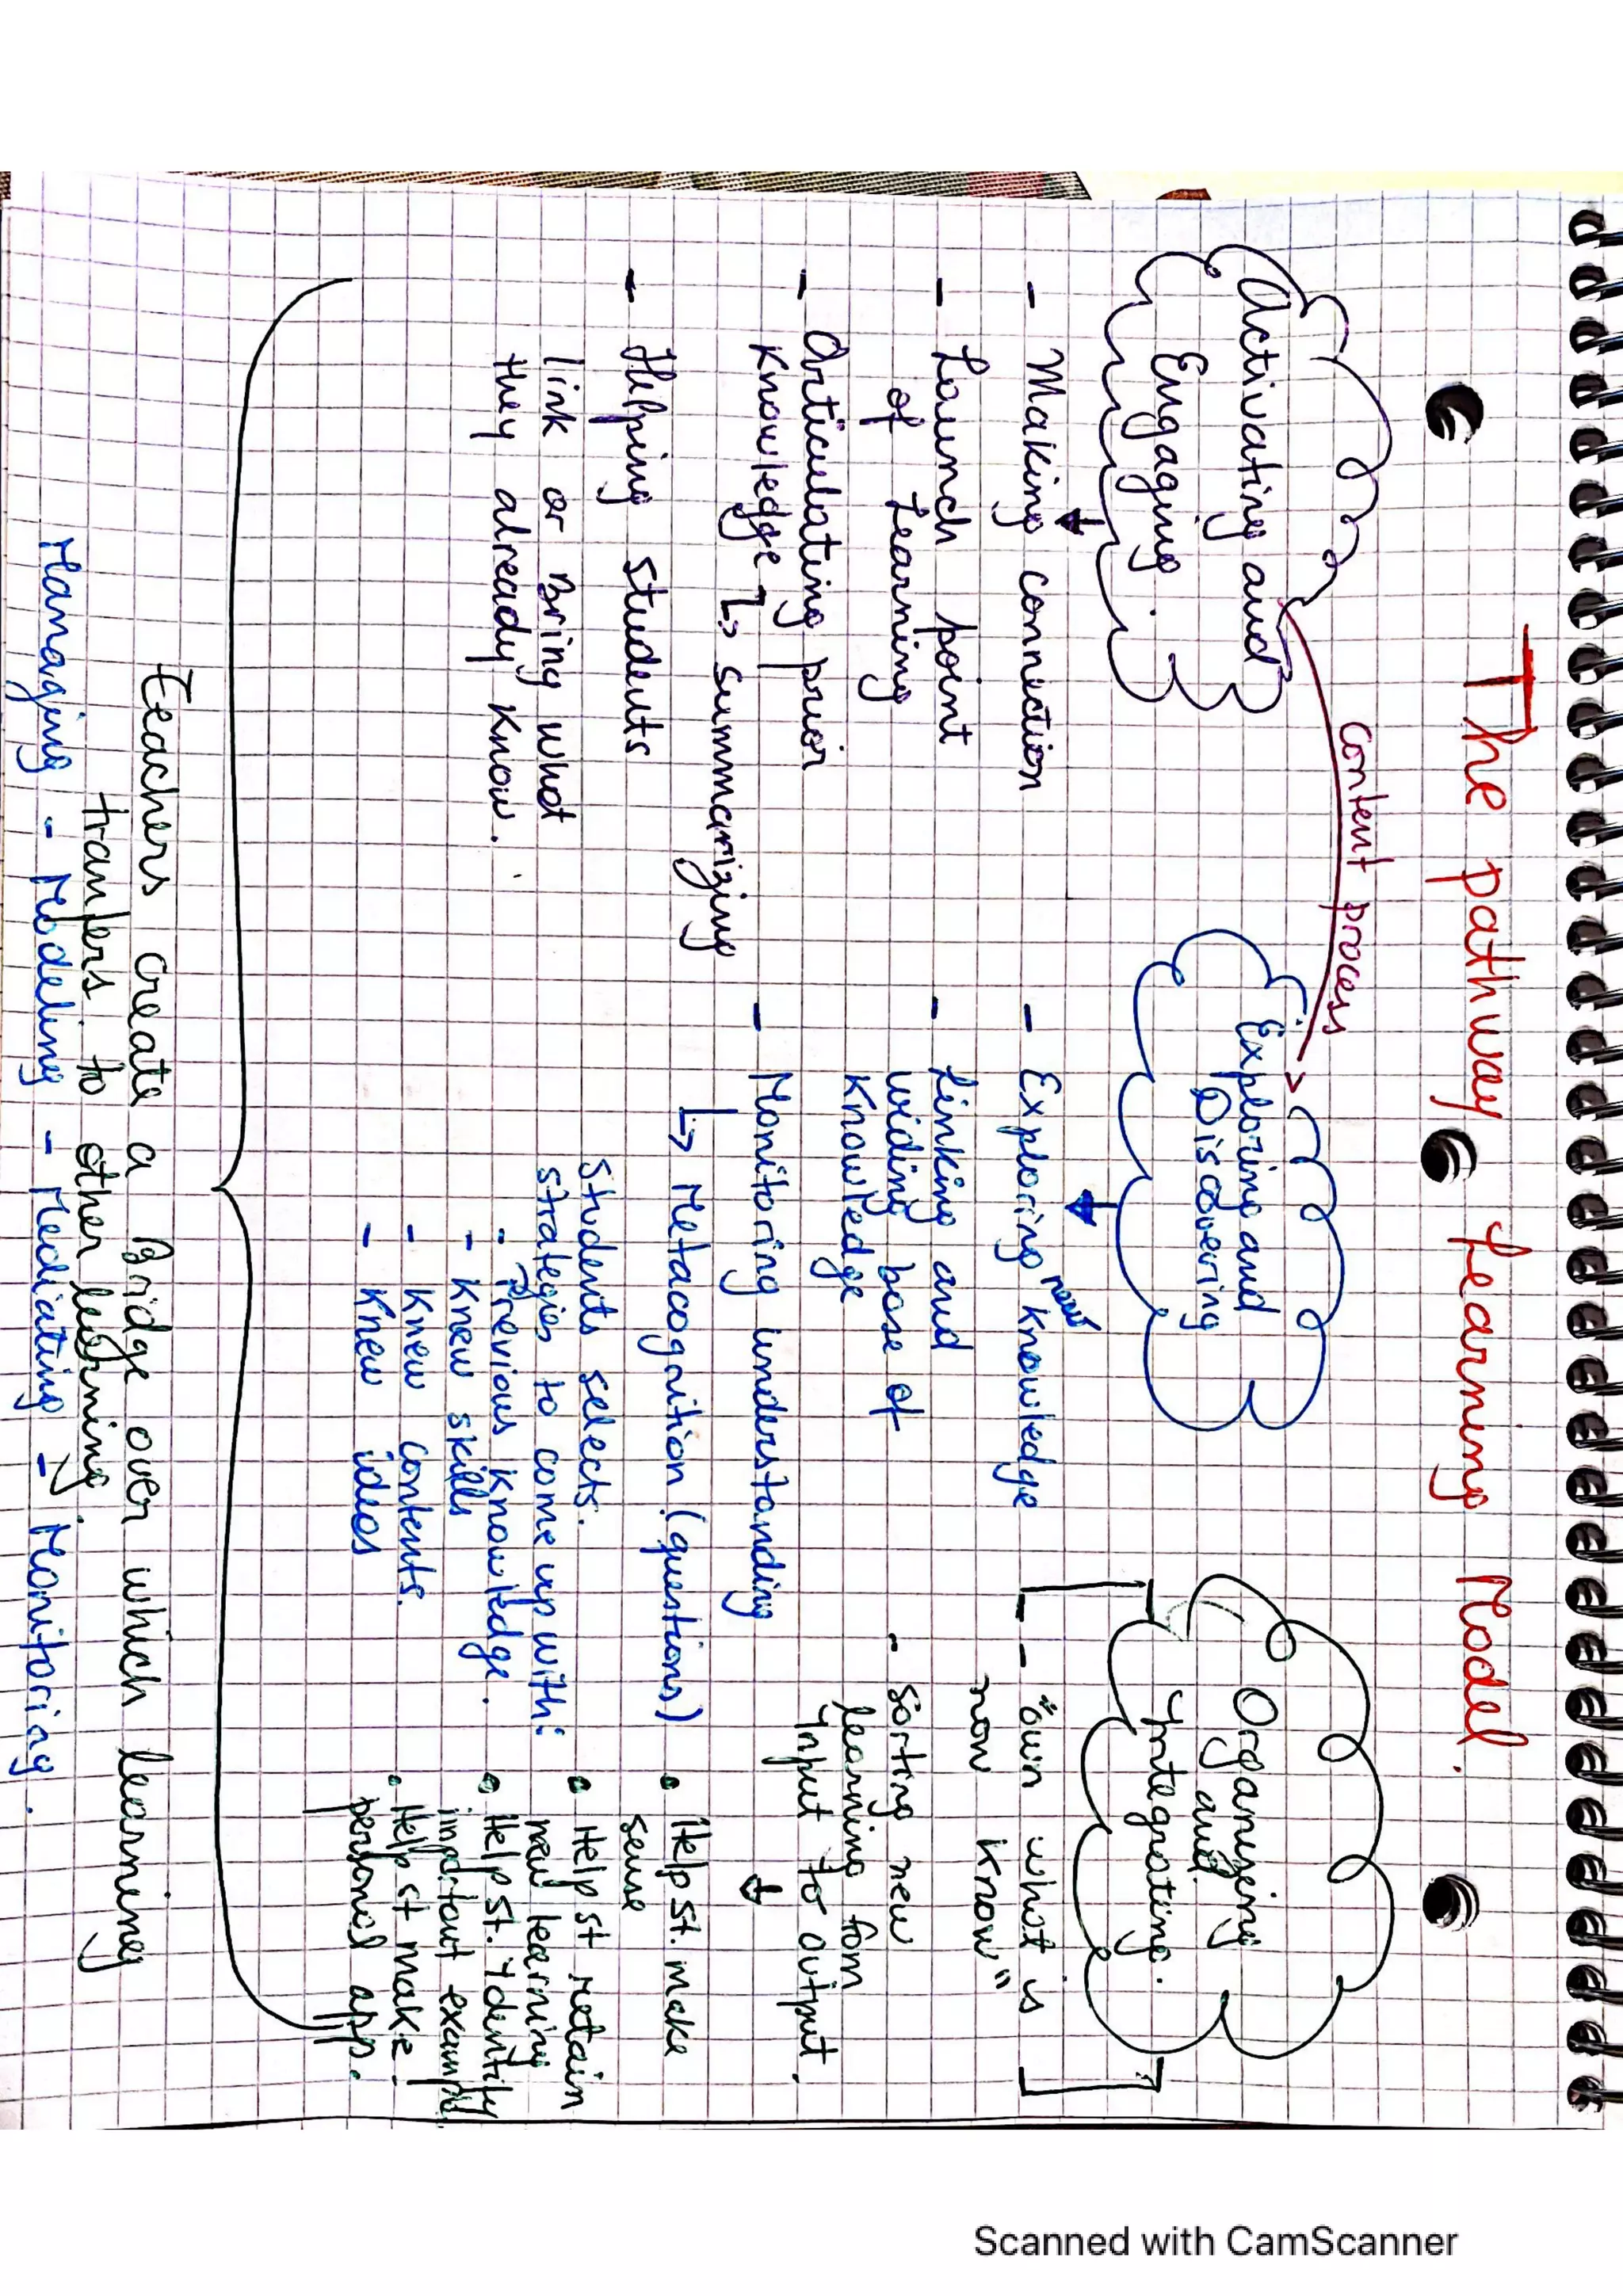 The pathway Learning Model.
content process
Activating and
Engaging.
- Making connection
- Launch point
of Learning
- Articulating prior
Knowledge
↳ summarizing
- Helping students
link or Bring what
they already know.
Exploring and
Discovering
- Exploring new knowledge
- Linking and
widing base of
knowledge
- Monitoring understanding
↳ Metacognition (questions)
students selects.
strategies to come up with:
- Previous knowledge.
- Knew skills
- Knew contents.
- Knew ideas
Organizing
and
Integrating.
- "own what is
now know"
- sorting new
learning from
Input to output.
• Help st. make
sense
• Help st retain
new learning
• Help st. identify
important example
• Help st make
personal app.
Teachers create a Bridge over which learning
tranfers to other learning
Managing - Modeling - Mediating - Monitoring.
Scanned with CamScanner